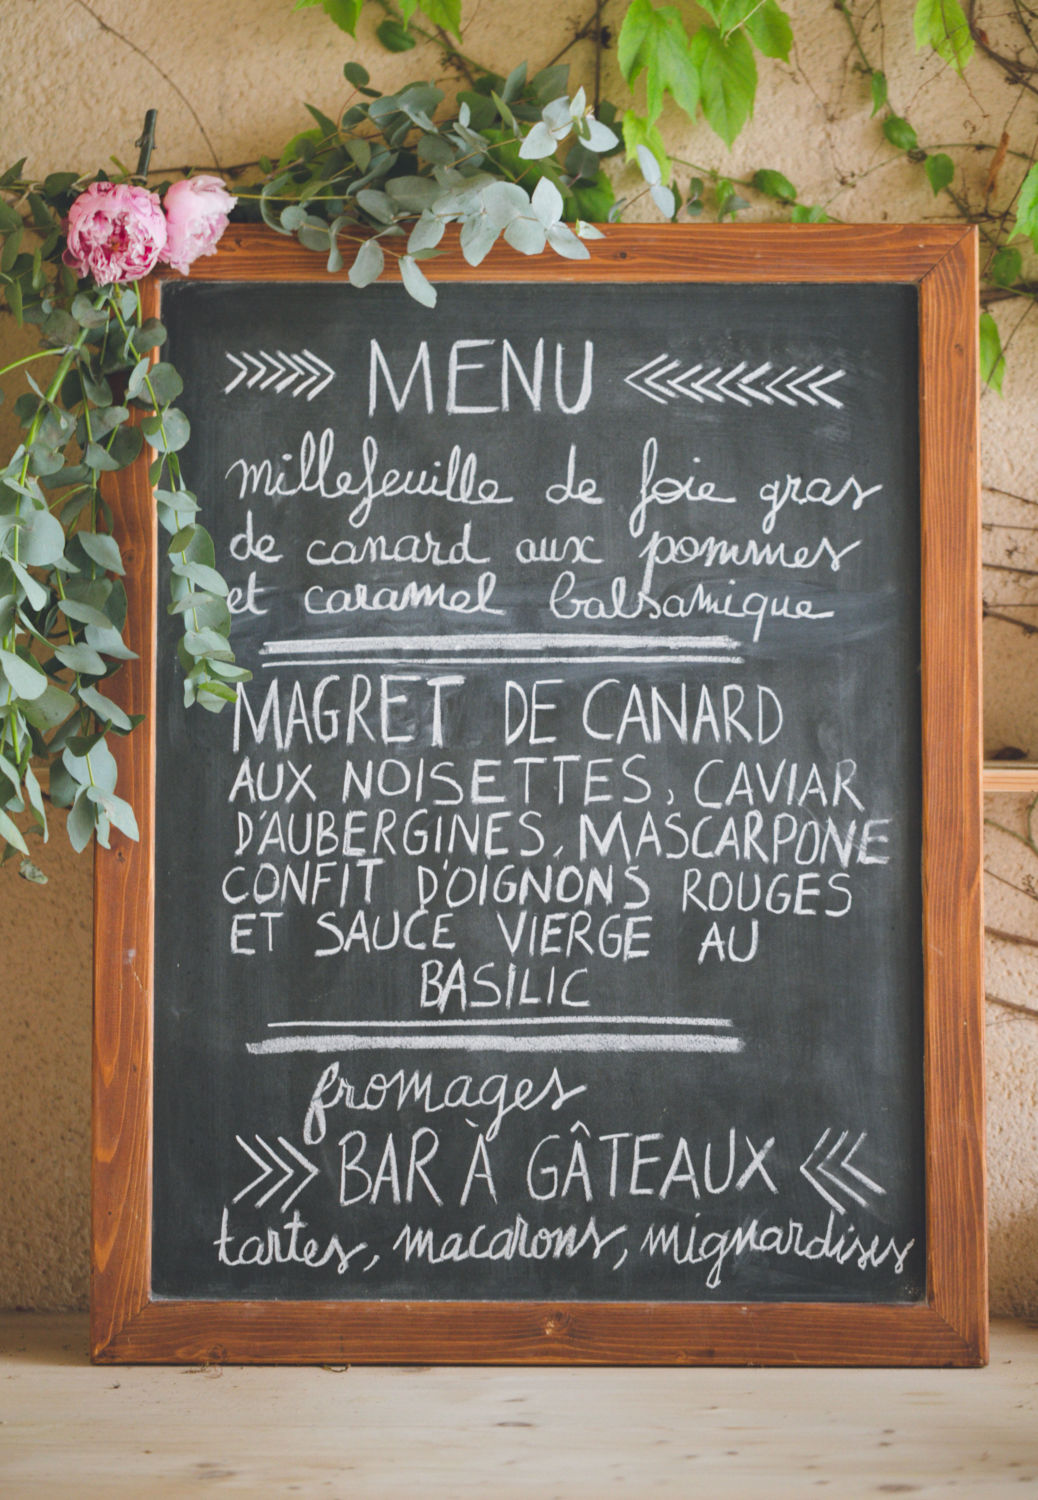 MENU
millefeuille de foie gras
de canard aux pommes
et caramel balsamique
MAGRET DE CANARD
AUX NOISETTES, CAVIAR
D'AUBERGINES, MASCARPONE
CONFIT D'OIGNONS ROUGES
ET SAUCE VIERGE AU
BASILIC
fromages
BAR À GÂTEAUX
tartes, macarons, mignardises